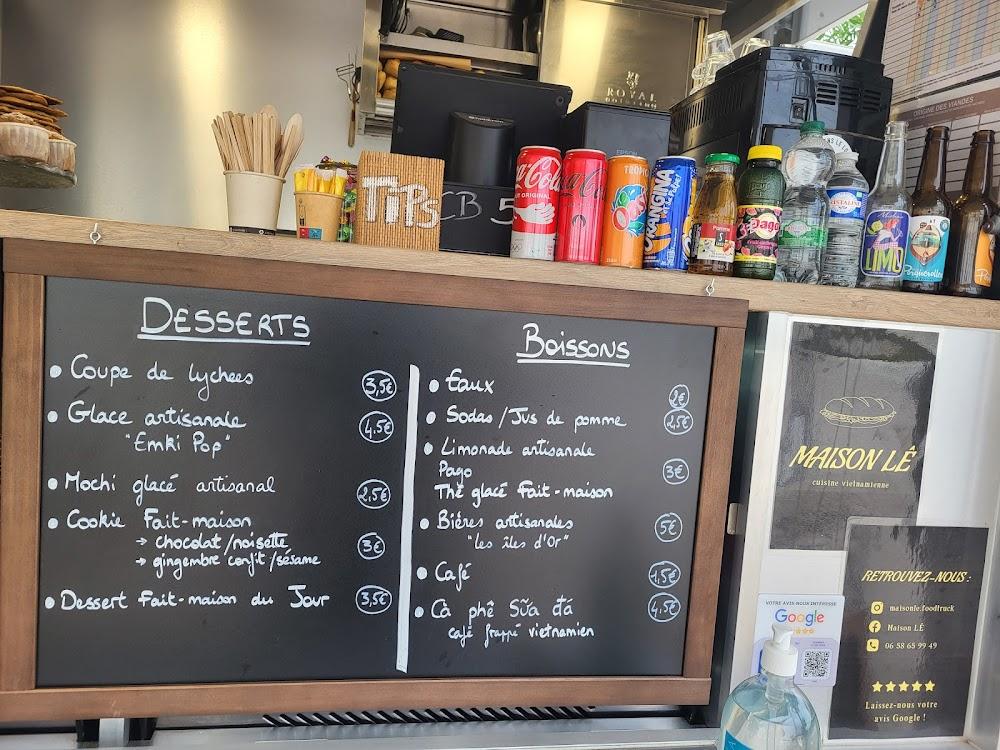 ROYAL
TiPs
CB 5
EPSON
ORIGINE DES VIANDES
Coca-Cola
TROPICAL
Oasis
ORANGINA
Pago
CRISTALINE
LIMO
Porquerolles
DESSERTS
• Coupe de lychees 3,5€
• Glace artisanale 4,5€
"Emki Pop"
• Mochi glacé artisanal 2,5€
• Cookie Fait-maison
→ chocolat/noisette 3€
→ gingembre confit/sésame
• Dessert Fait-maison du Jour 3,5€
BOISSONS
• Eaux 2€
• Sodas/Jus de pomme 2,5€
• Limonade artisanale
Pago 3€
Thé glacé Fait-maison
• Bières artisanales 5€
"les îles d'Or"
• Café 1,5€
• Cà phê Sữa đá 4,5€
café frappé vietnamien
MAISON LÊ
cuisine vietnamienne
RETROUVEZ-NOUS :
maisonle.foodtruck
Maison LÊ
06 58 65 99 49
Laissez-nous votre
avis Google !
VOTRE AVIS NOUS INTÉRESSE
Google